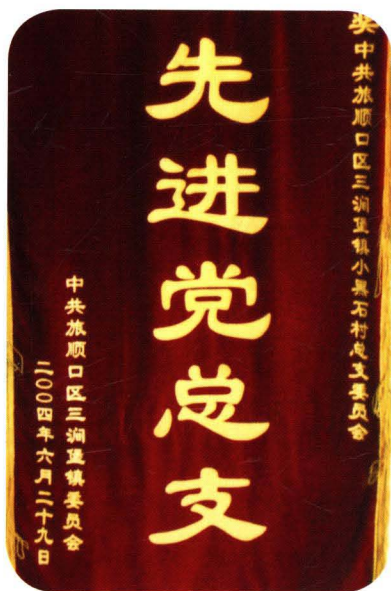 奖中共旅顺口区三涧堡镇小黑石村总支委员会
先进党总支
中共旅顺口区三涧堡镇委员会
二〇〇四年六月二十九日